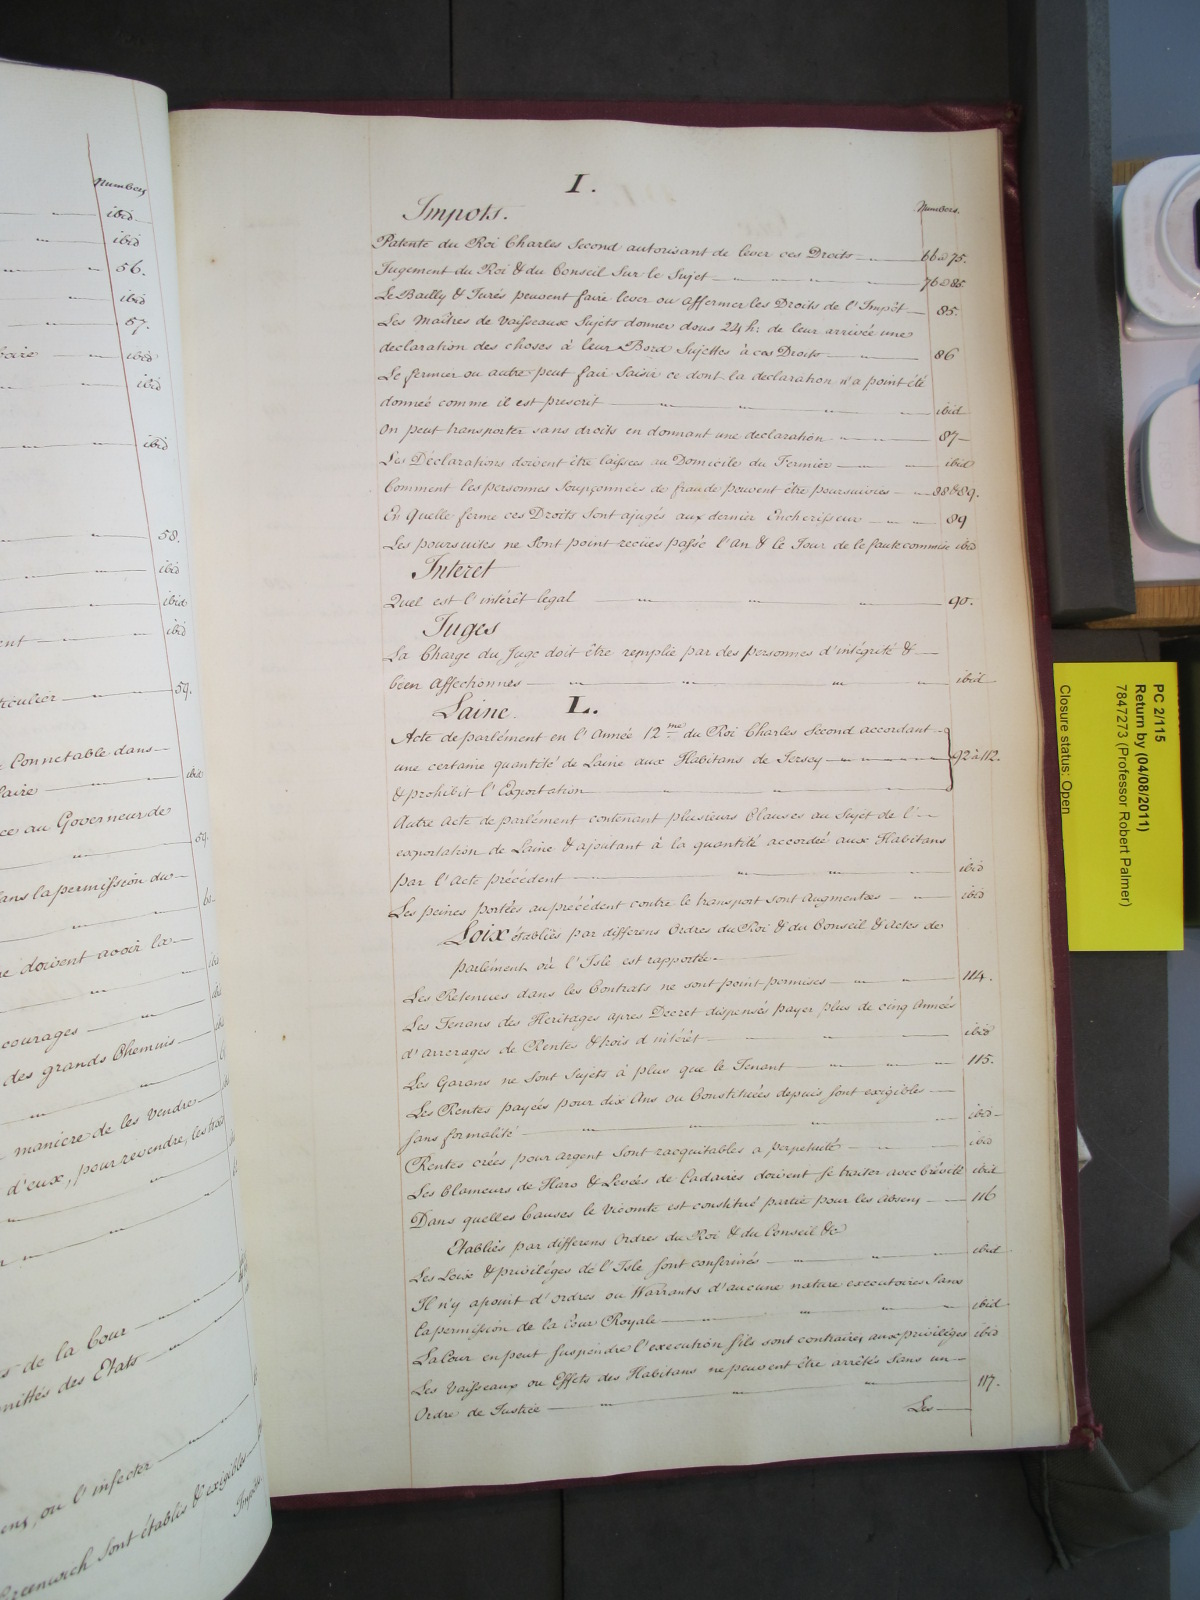 Numbers
ibid
ibid
56.
ibid
57.
ibid
ibid
ibid
58.
ibid
ibid
ibid
59.
Connetable dans
ibid
ce au Governeur de
59.
ans la permission du
doivent avoir la
courages
des grands Chemins
maniere de les vendre
d'eux, pour revendre, les
de la Cour
mittés des Etats
ens, ou l'infecter
Greenwich sont établis & exigibles
Impôts
I.
Impots.
Numbers.
Patente du Roi Charles Second autorisant de lever ces Droits 66 à 75.
Jugement du Roi & du Conseil Sur le Sujet 76 à 85
Le Bailly & Jurés peuvent faire lever ou affermer les Droits de l'Impôt 85.
Les Maîtres de Vaisseaux Sujets donner dans 24 h: de leur arrivée une
declaration des choses à leur Bord Sujettes à ces Droits 86
Le fermier ou autre peut fair Saisir ce dont la declaration n'a point été
donneé comme il est prescrit ibid
On peut transporter sans droits en donnant une declaration 87
Les Déclarations doivent être laissees au Domicile du Fermier ibid
Comment les personnes Soupçonnées de fraude peuvent être poursuivies 88 & 89.
En Quelle ferme ces Droits Sont ajugés aux dernier Encherisseur 89
Les poursuites ne Sont point recües passé l'An & le Jour de le faute commise ibid
Interet
Quel est l'intérêt legal 90.
Juges
La Charge du Juge doit être remplie par des personnes d'intégrité &
bien Affectionnes ibid
Laine. L.
Acte de parlément en l'Année 12me du Roi Charles Second accordant
une certaine quantité de Laine aux Habitans de Jersey 92 à 112.
& prohibit l'Exportation
Autre Acte de parlément contenant plusieurs Clauses au Sujet de l'
exportation de Laine & ajoutant à la quantité accordeé aux Habitans
par l'Acte précédent ibid
Les peines portées au précédent contre le transport sont Augmentees ibid
Loix établies par differens Ordres du Roi & du Conseil & Actes de
parlément où l'Isle est rapportée
Les Retenues dans les Contrats ne sont point permises 114.
Les Tenans des Heritages apres Decret dispensés payer plus de cinq Années
d'arrerages de Rentes & trois d'intérêt ibid
Les Garans ne Sont Sujets à plus que le Tenant 115.
Les Rentes payées pour dix Ans ou Constituées depuis sont exigibles
sans formalité ibid
Rentes crées pour argent Sont racquitables a perpetuité ibid
Les Clameurs de Haro & Levées de Cadavres doivent se traiter avec brévité ibid
Dans quelles Causes le Vicomte est constitué partie pour les absens 116
Etablies par differens Ordres du Roi & du Conseil &c
Les Loix & priviléges de l'Isle sont confirmés ibid
Il n'y a point d'ordres ou Warrants d'aucune nature executoires Sans
la permission de la Cour Royale ibid
La Cour en peut suspendre l'execution s'ils sont contraires aux priviléges ibid
Les Vaisseaux ou Effets des Habitans ne peuvent être arrêtés Sans un
Ordre de Justice 117.
Les
PC 2/115
Return by (04/08/2011)
7847273 (Professor Robert Palmer)
Closure status: Open